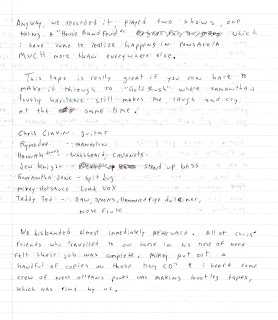 Anyway, we recorded it, played two shows, one
being a "House Band Feud" which
I have come to realize happens in Pensacola
MUCH more than everywhere else.
This tape is really great if you can bare to
make it through to "Gold Rush" where Samantha's
lovely baritone still makes me laugh and cry
at the same time.
Chris Clavin - guitar
- mandolin
Hannah - washboard, castanets
Jew knight - stand up bass
Samantha Jane - spit jug
Mikey Hotsauce Lead Vox
Teddy Ted - saw, spoons, Hammered pipe dulcimer,
nose flute
We disbanded almost immediately afterward. All of Chris'
friends who travelled to our home in his time of need
felt their job was complete. Mikey put out a
handful of copies on those tiny CD's & I heard some
crew of New Orleans punks was making bootleg tapes,
which was fine by us.